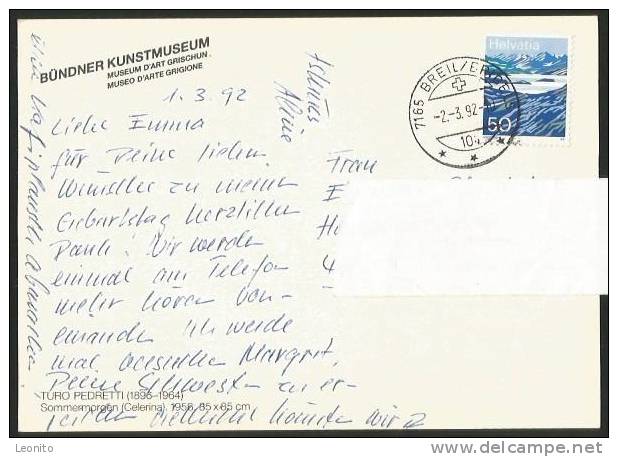 BÜNDNER KUNSTMUSEUM
MUSEUM D'ART GRISCHUN
MUSEO D'ARTE GRIGIONE
1.3.92
Liebe Emma
für Deine lieben
Wünsche zu meinem
Geburtstag herzlichen
Dank! Wir werden
einmal am Telefon
mehr hören von-
einander. Ich werde
mal versuchen Margrit,
Deine Schwester zu er-
wir
TURO PEDRETTI (1896-1964)
Sommermorgen (Celerina), 1956, 65 x 85 cm
Helvetia
50
7165 BREIL/
-2.-3.92-
10
Frau
E
H
4
Leonito
www.delcampe.net